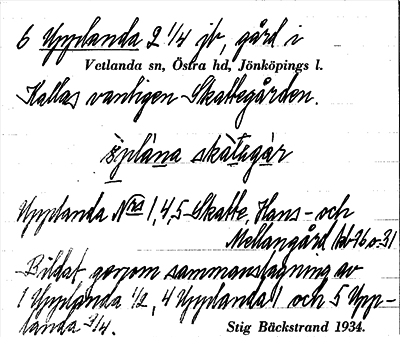 6 Upplanda 2 1/4 jb, gård i
Vetlanda sn, Östra hd, Jönköpings l.
Kallas vanligen Skattegården.
skàtəgàr
Upplanda Nrs 1,4,5 Skatte, Hans- och
Mellangård
Bildat genom sammanslagning av
1 Upplanda 1/2, 4 Upplanda 1 och 5 Upp-
landa 3/4.
Stig Bäckstrand 1934.